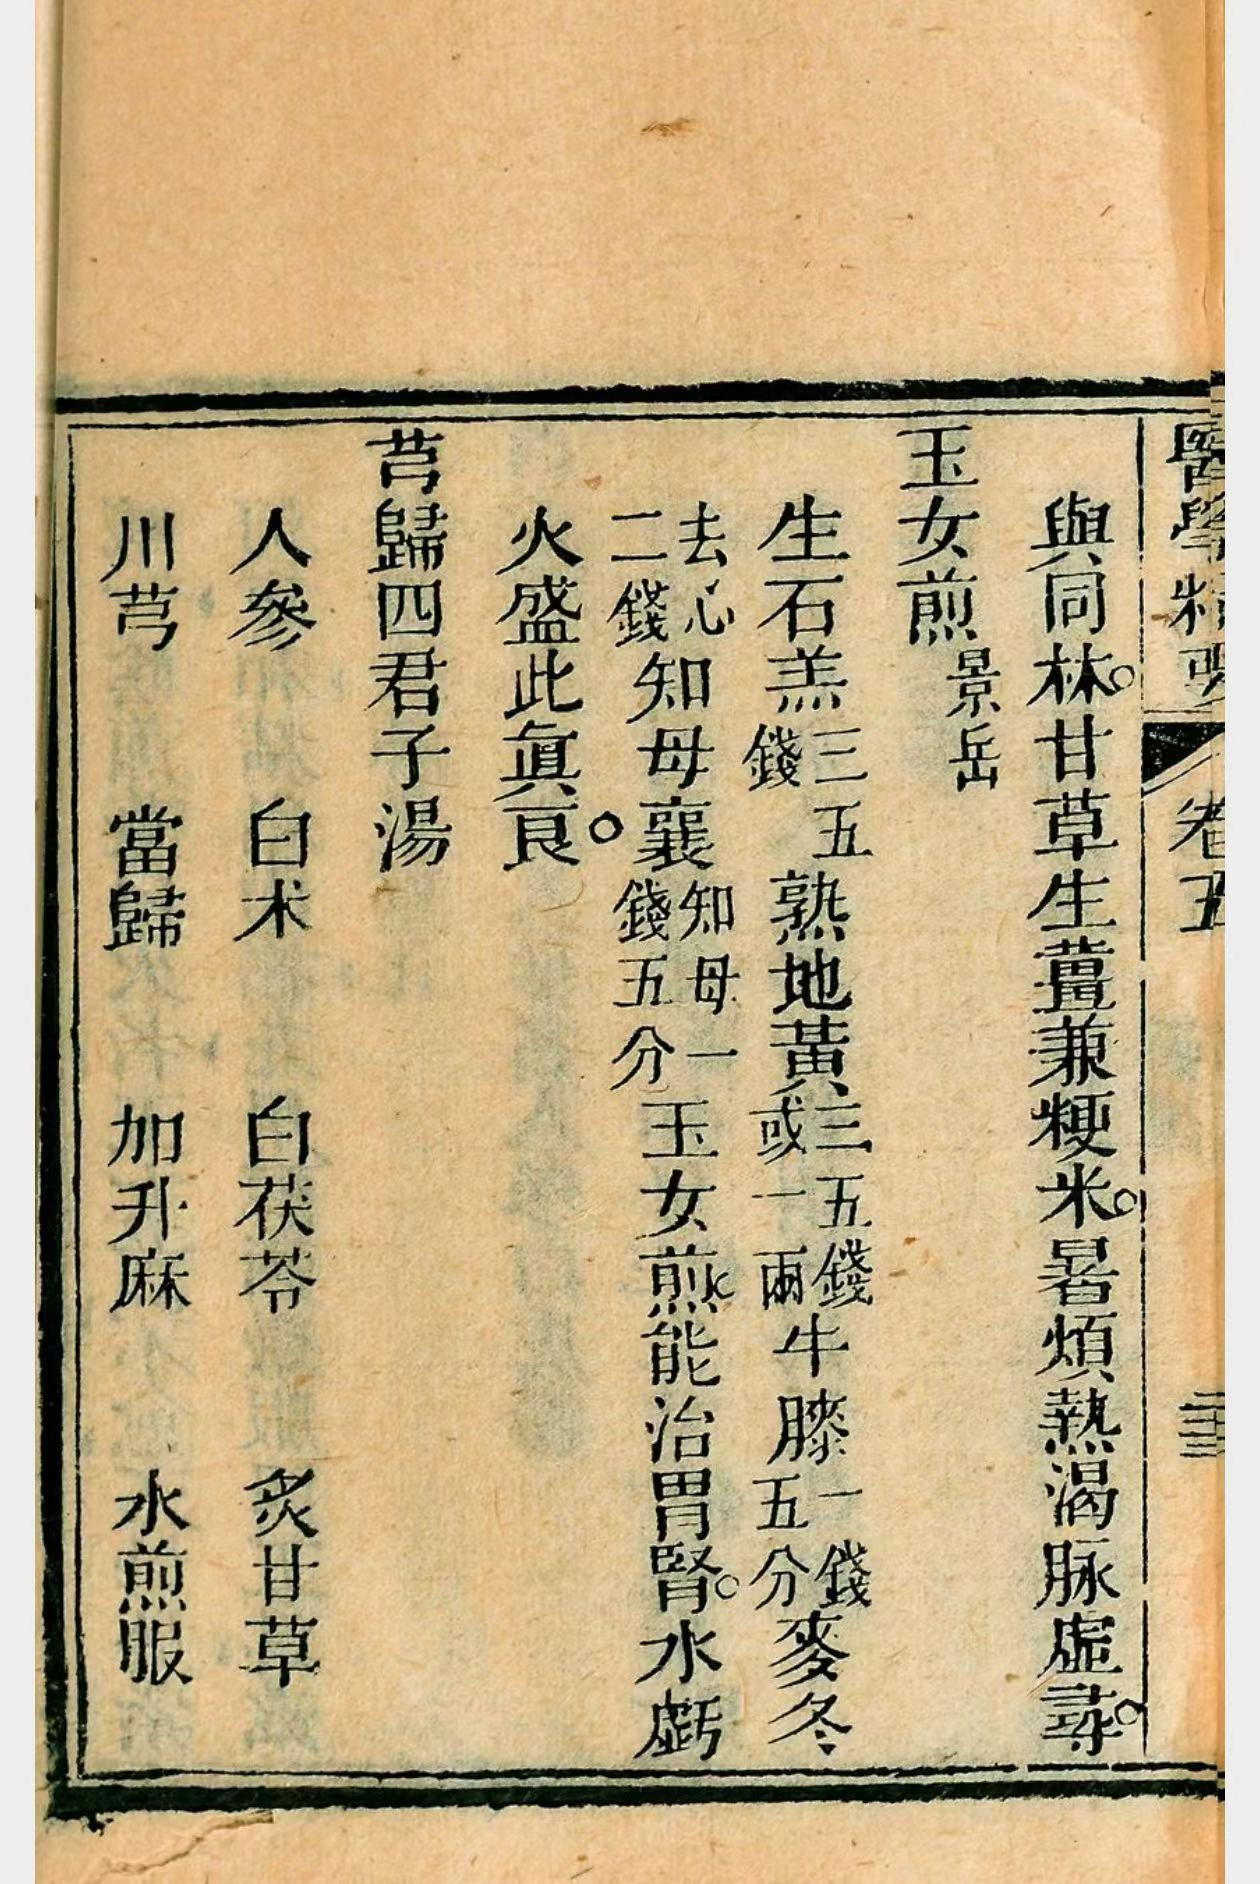 醫學精要 卷五
與同林。甘草生薑兼粳米。暑煩熱渴脉虛尋。
玉女煎景岳
生石羔三五錢熟地黃三五錢或一兩牛膝一錢五分麥冬
去心二錢知母襄知母一錢五分玉女煎能治胃腎。水虧
火盛此眞良。
芎歸四君子湯
人參 白术 白茯苓 炙甘草
川芎 當歸 加升麻 水煎服